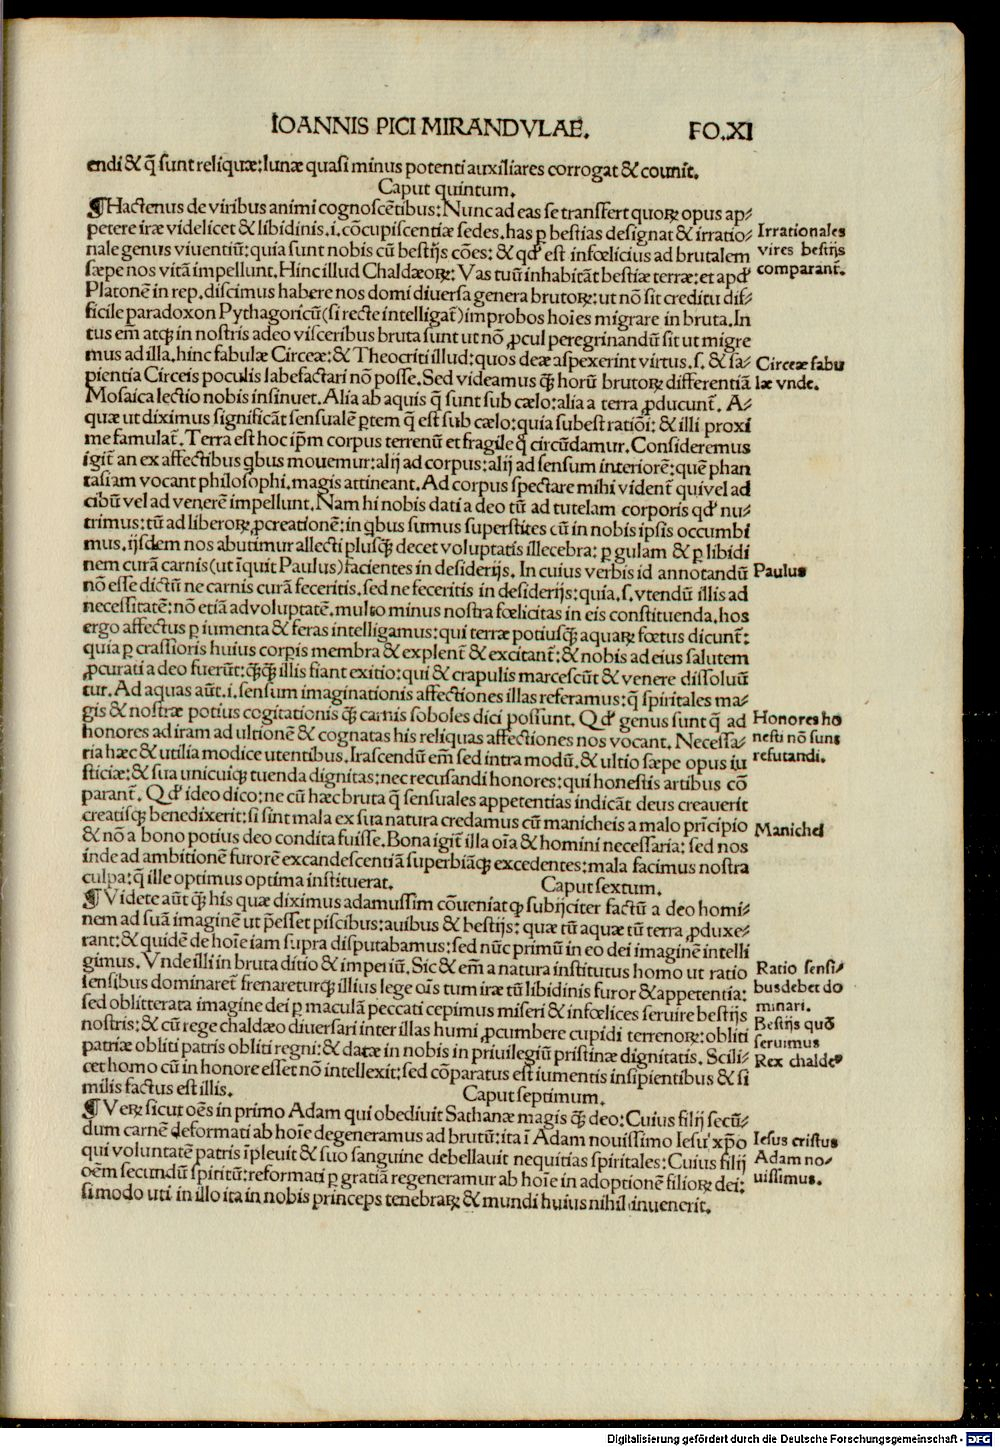 IOANNIS PICI MIRANDVLAE. FO.XI
endi & q̃ sunt reliquæ:lunæ quasi minus potenti auxiliares corrogat & counit.
Caput quintum.
¶Hactenus de viribus animi cognoscẽtibus:Nunc ad eas se transfert quoꝝ opus ap⸗
petere iræ videlicet & libidinis.i.cõcupiscentiæ sedes.has ꝑ bestias designat & irratio⸗
nale genus viuentiũ:quia sunt nobis cũ bestijs cões: & qd' est infœlicius ad brutalem
sæpe nos vitã impellunt.Hinc illud Chaldæoꝝ: Vas tuũ inhabitãt bestiæ terræ:et apd'
Platonẽ in rep.discimus habere nos domi diuersa genera brutoꝝ:ut nõ sit creditu dif⸗
ficile paradoxon Pythagoricũ(si recte intelligat̃)improbos hoies migrare in bruta.In
tus em̃ atqꝫ in nostris adeo visceribus bruta sunt ut nõ ꝓcul peregrinandũ sit ut migre
mus ad illa.hinc fabulæ Circeæ:& Theocriti illud:quos deæ aspexerint virtus.s.& sa⸗
pientia Circeis poculis labefactari nõ posse.Sed videamus qꝫ̃ horũ brutoꝝ differentiã
Mosaica lectio nobis insinuet.Alia ab aquis q̃ sunt sub cælo:alia a terra ꝓducunt̃. A⸗
quæ ut diximus significãt sensualẽ ꝑtem q̃ est sub cælo:quia subest ratiõi:& illi proxi
me famulat̃.Terra est hoc ip̃m corpus terrenũ et fragile q̊ circũdamur.Consideremus
igit̃ an ex affectibus qbus mouemur:alij ad corpus:alij ad sensum interiorẽ:quẽ phan
tasiam vocant philosophi.magis attineant.Ad corpus spectare mihi vident̃ qui vel ad
cibũ vel ad venerẽ impellunt.Nam hi nobis dati a deo tũ ad tutelam corporis qd' nu⸗
trimus:tũ ad liberoꝝ ꝓcreationẽ:in qbus sumus superstites cũ in nobis ipsis occumbi
mus.ijsdem nos abutimur allecti plusqꝫ̃ decet voluptatis illecebra: ꝑ gulam & ꝑ libidi
nem curã carnis(ut ĩquit Paulus)facientes in desiderijs.In cuius verbis id annotandũ
nõ esse dictũ ne carnis curã feceritis.sed ne feceritis in desiderijs:quia.s.vtendũ illis ad
necessitatẽ:nõ etiã ad voluptatẽ.multo minus nostra fœlicitas in eis constituenda.hos
ergo affectus ꝑ iumenta & feras intelligamus:qui terræ potiusqꝫ̃ aquaꝝ fœtus dicunt̃:
quia ꝑ crassioris huius corpis membra & explent̃ & excitant̃:& nobis ad eius salutem
ꝓcurati a deo fuerũt:qꝫ̃qꝫ̃ illis fiant exitio:qui & crapulis marcescũt & venere dissoluũ
tur.Ad aquas aũt.i.sensum imaginationis affectiones illas referamus:q̃ spiritales ma⸗
gis & nostræ potius cogitationis qꝫ̃ carnis soboles dici possunt. Qd' genus sunt q̃ ad
honores ad iram ad ultionẽ & cognatas his reliquas affectiones nos vocant.Necessa⸗
ria hæc & utilia modice utentibus.Irascendũ em̃ sed intra modũ.& ultio sæpe opus iu
sticiæ:& sua unicuiqꝫ tuenda dignitas:nec recusandi honores:qui honestis artibus cõ
parant̃. Qd' ideo dico:ne cũ hæc bruta q̃ sensuales appetentias indicãt deus creauerit
creatisqꝫ benedixerit:si sint mala ex sua natura credamus cũ manicheis a malo prĩcipio
& nõ a bono potius deo condita fuisse.Bona igit̃ illa oĩa & homini necessaria: sed nos
inde ad ambitionẽ furorẽ excandescentiã superbiãqꝫ excedentes:mala facimus nostra
culpa:q̃ ille optimus optima instituerat. Caput sextum.
¶ Videte aũt qꝫ̃ his quæ diximus adamussim cõueniat qꝫ subijciter factũ a deo homi⸗
nem ad suã imaginẽ ut p̃esset piscibus:auibus & bestijs: quæ tũ aquæ tũ terra ꝓduxe⸗
rant:& quidẽ de hoĩe iam supra disputabamus:sed nũc primũ in eo dei imaginẽ intelli
gimus.Vnde illi in bruta ditio & imperiũ.Sic & em̃ a natura institutus homo ut ratio
sensibus dominaret̃ frenareturqꝫ illius lege oĩs tum iræ tũ libidinis furor & appetentia:
sed oblitterata imagine dei ꝑ maculã peccati cepimus miseri & infœlices seruire bestijs
nostris:& cũ rege chaldæo diuersari inter illas humi ꝓcumbere cupidi terrenoꝝ:obliti
patriæ obliti patris obliti regni:& datæ in nobis in priuilegiũ pristinæ dignitatis. Scili⸗
cet homo cũ in honore esset nõ intellexit:sed cõparatus est iumentis insipientibus & si
milis factus est illis. Caput septimum.
¶ Veꝝ sicut oẽs in primo Adam qui obediuit Sathanæ magis qꝫ̃ deo:Cuius filij secũ⸗
dum carnẽ deformati ab hoĩe degeneramus ad brutũ:ita ĩ Adam nouissimo Iesu xp̃o
qui voluntatẽ patris ĩpleuit & suo sanguine debellauit nequitias spiritales:Cuius filij
oẽm secundũ spiritũ:reformati ꝑ gratiã regeneramur ab hoĩe in adoptionẽ filioꝝ dei:
si modo uti in illo ita in nobis princeps tenebraꝝ & mundi huius nihil inuenerit.
Irrationales
vires bestijs
comparant̃.
Circeæ fabu
læ vnde.
Paulus
Honores ho
nesti nõ sunt
refutandi.
Manichei
Ratio sensi⸗
bus debet do
minari.
Bestijs quõ
seruimus
Rex chaldeꝰ
Iesus cristus
Adam no⸗
uissimus.
Digitalisierung gefördert durch die Deutsche Forschungsgemeinschaft - DFG